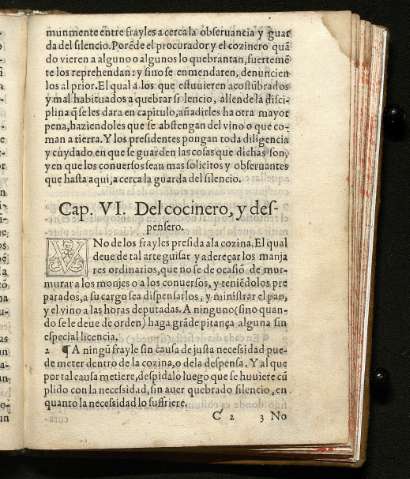 munmente entre frayles acerca la obseruancia y guar
da del silencio. Porẽde el procurador y el cozinero quã
do vieren a alguno o algunos lo quebrantan, fuertemẽ
te los reprehendan: y si no se enmendaren, denuncien
los al prior. El qual a los que estuuieren acostũbrados
y mal habituados a quebrar silencio, allende la disci-
plina q̃ se les dara en capitulo, añadirles ha otra mayor
pena, haziendoles que se abstengan del vino o que co-
man a tierra. Y los presidentes pongan toda diligencia
y cuydado en que se guarden las cosas que dichas son,
y en que los conuersos sean mas solicitos y obseruantes
que hasta aqui, acerca la guarda del silencio.
Cap. VI. Del cocinero, y des-
pensero.
VNo de los frayles presida a la cozina. El qual
deue de tal arte guisar y adereçar los manja
res ordinarios, que no se de ocasiõ de mur-
murar a los monjes o a los conuersos, y teniẽdolos pre
parados, a su cargo sea dispensarlos, y ministrar el pan,
y el vino a las horas deputadas. A ninguno (sino quan-
do se le deue de orden) haga grãde pitança alguna sin
especial licencia.
2 ¶ A ningũ frayle sin causa de justa necessidad pue-
de meter dentro de la cozina, o de la despensa. Y al que
por tal causa metiere, despidalo luego que se huuiere cũ
plido con la necessidad, sin auer quebrado silencio, en
quanto la necessidad lo sufriere.
C 2 3 No